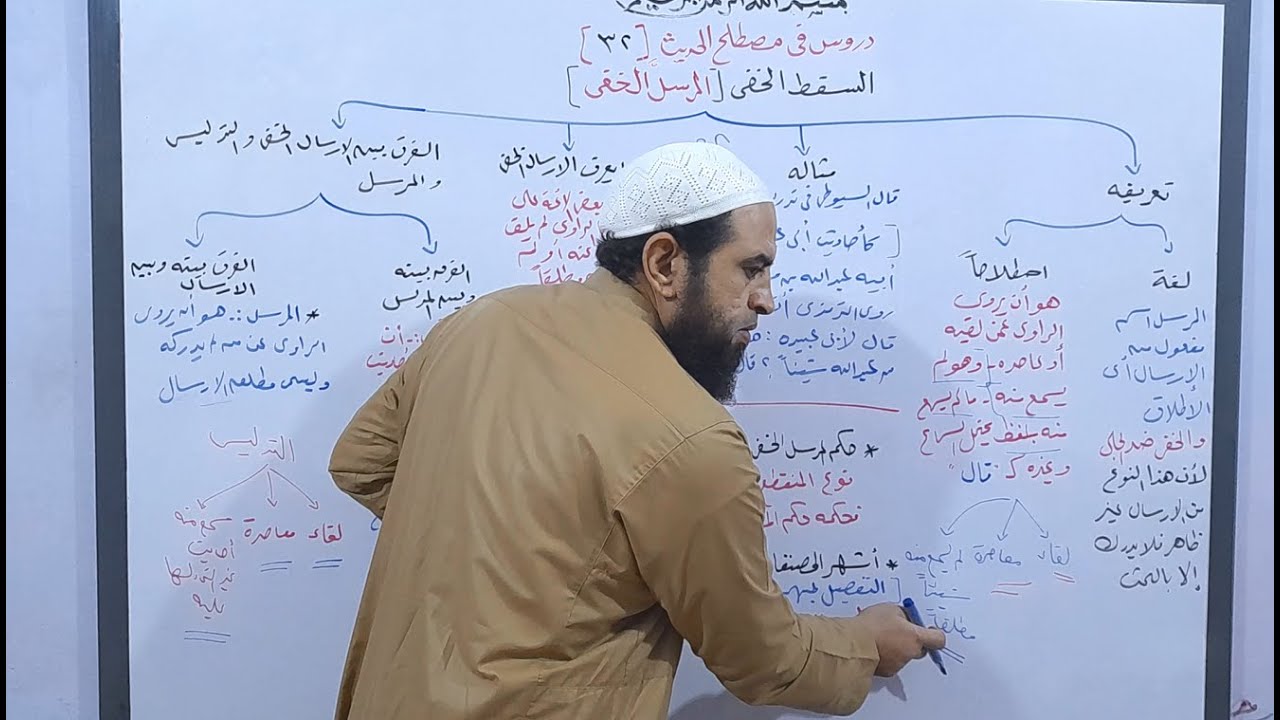 بسم الله الرحمن الرحيم
دروس في مصطلح الحديث [٣٢]
السقط الخفي [المرسل الخفي]
تعريفه
لغة
المرسل اسم
مفعول من
الإرسال أى
الإطلاق
والخفى ضد الجلى
لأن هذا النوع
من الإرسال غير
ظاهر فلا يدرك
إلا بالبحث
اصطلاحاً
هو أن يروى
الراوى عمن لقيه
أو عاصره - وهو لم
يسمع منه - مالم يسمع
منه بلفظ يحتمل السماع
وغيره كـ قال
لقاء
معاصرة
لم يسمع منه
شيئاً
مطلقاً
مثاله
قال السيوطى فى
[كأحاديث أبى
أبيه عبدالله بن
روى الترمذى
قال لأبى عبيدة:
من عبدالله شيئاً؟
* حكم المرسل
نوع المنقطع
فحكمه حكم
* أشهر المصنفات
[التفصيل لمبهم
يعرف الإرسال
بعض الأئمة على
الراوى لم يلق
منه أو لم
مطلقاً
الفرق بين الإرسال الخفى والتدليس
والمرسل
الفرق بينه
وبين المدلس
أن
الفرق بينه وبين
الإرسال
* المرسل:- هو أن يروى
الراوى عن من لم يدركه
وليس مطلق الإرسال
التدليس
لقاء
معاصرة
سمع منه
أحاديث
غير التى دلسها
عليه